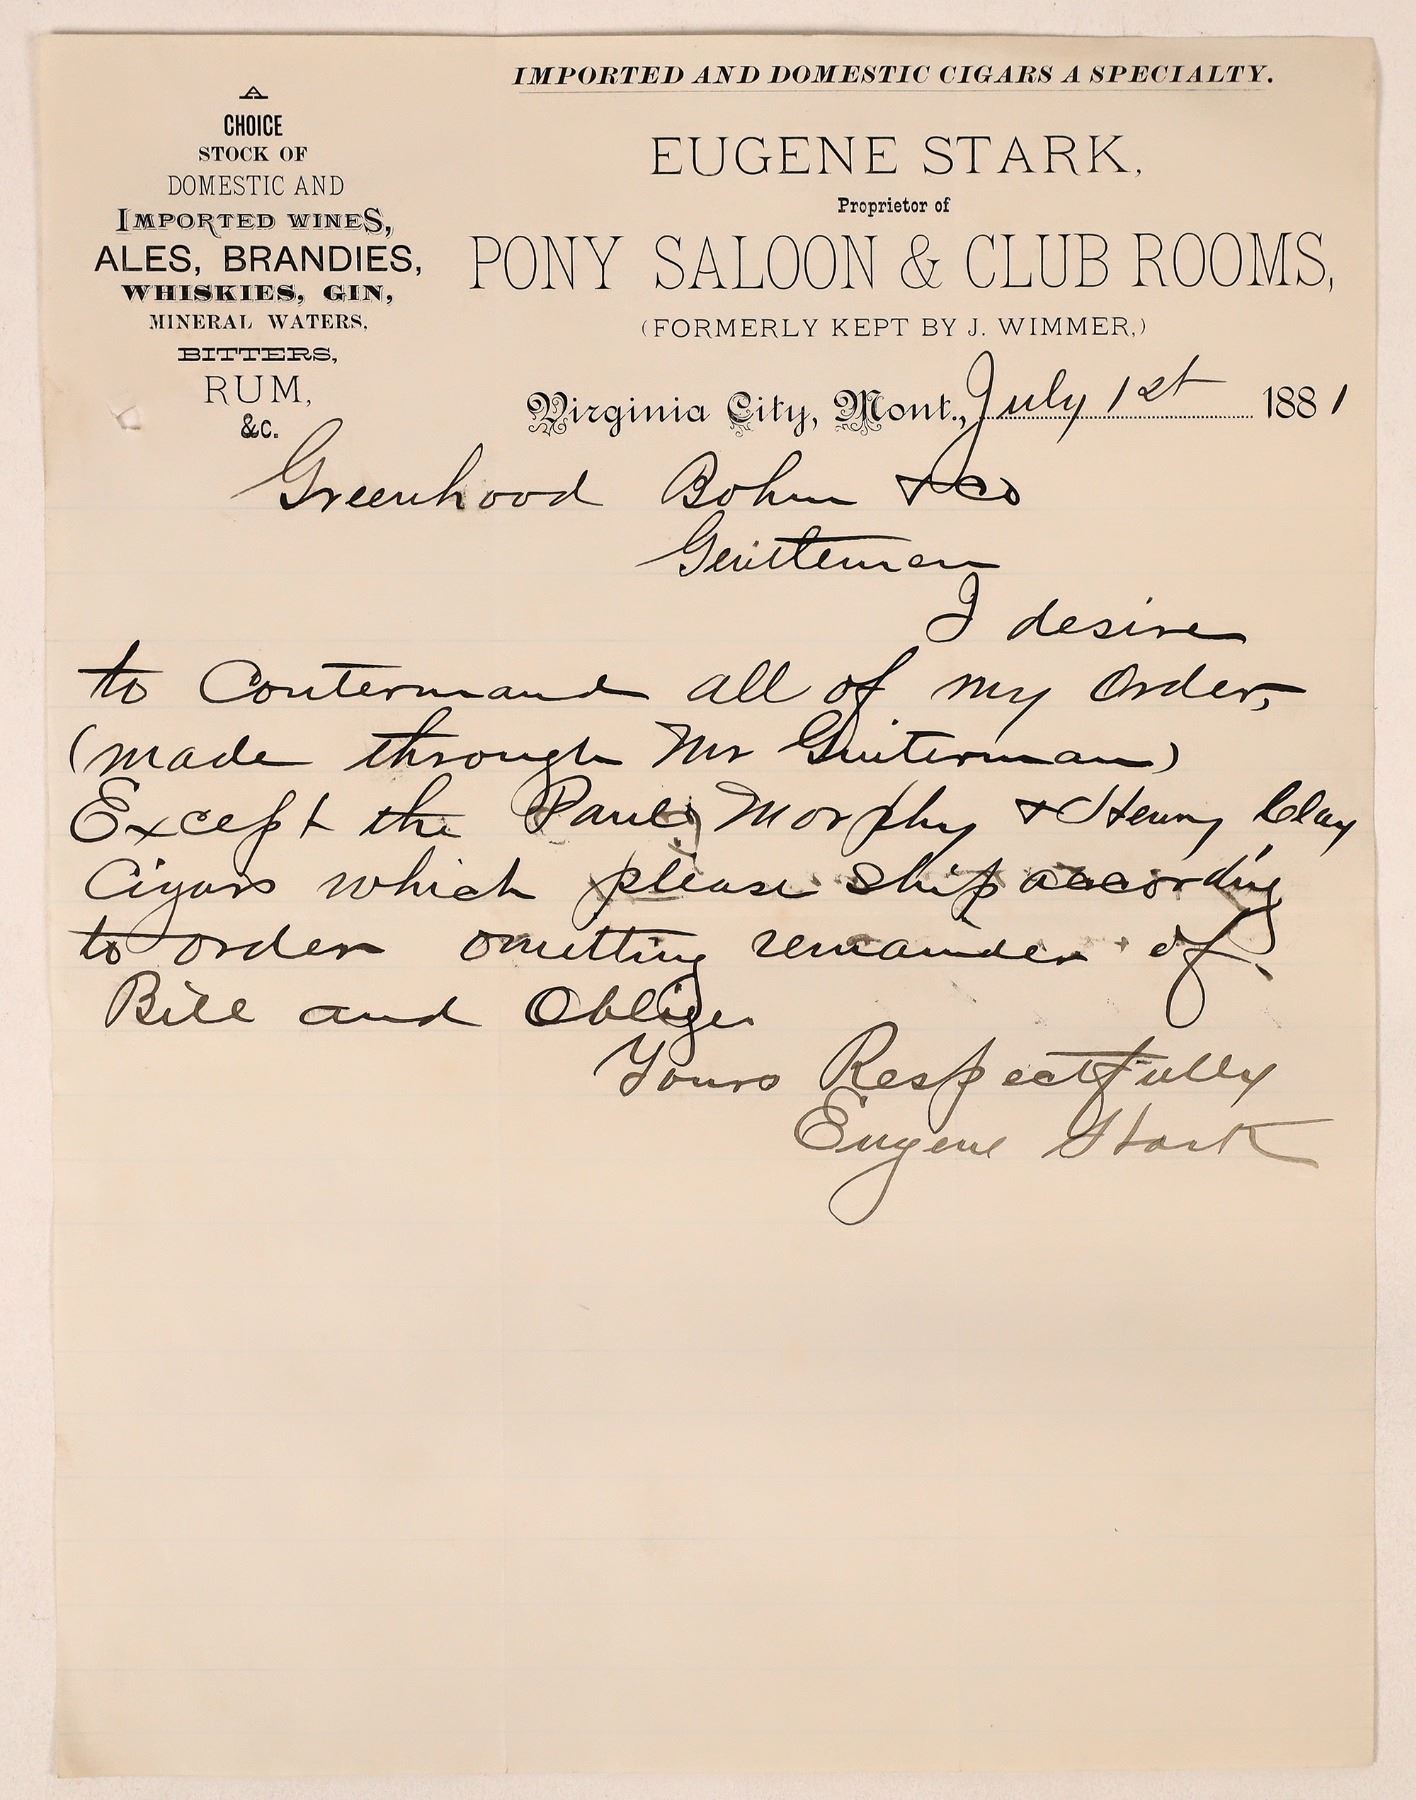 IMPORTED AND DOMESTIC CIGARS A SPECIALTY.
A
CHOICE
STOCK OF
DOMESTIC AND
IMPORTED WINES,
ALES, BRANDIES,
WHISKIES, GIN,
MINERAL WATERS,
BITTERS,
RUM,
&C.
EUGENE STARK,
Proprietor of
PONY SALOON & CLUB ROOMS,
(FORMERLY KEPT BY J. WIMMER,)
Virginia City, Mont., July 1st 1881
Greenhood Bohm & Co
Gentleman
I desire
to Contermand all of my Order,
(made through Mr Guiterman)
Except the Paul Morphy & Henry Clay
Cigars which please ship according
to order omitting remainder of
Bill and Oblige
Yours Respectfully
Eugene Stark